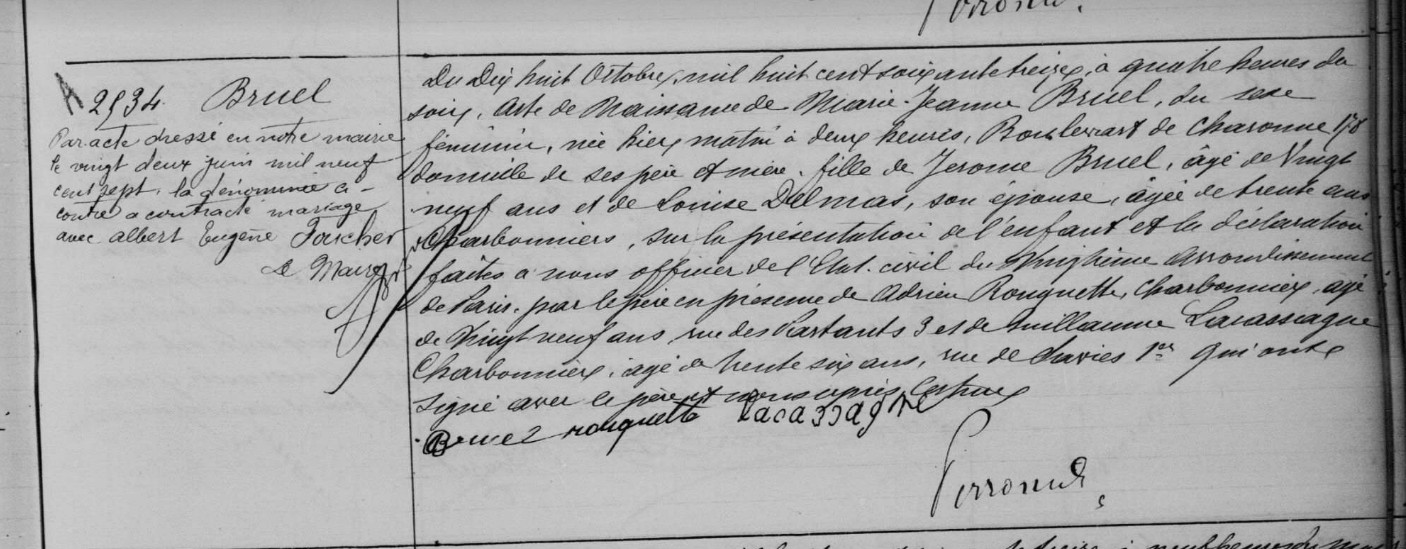 Perronud.
A
2934. Bruel
Par acte dressé en notre mairie
le vingt deux juin mil neuf
cent sept, la dénommée ci-
contre a contracté mariage
avec Albert Eugène
Le Maire
Du Dix huit Octobre, mil huit cent soixante treize, à quatre heures du
soir, Acte de Naissance de Marie-Jeanne Bruel, du sexe
féminin, née hier matin à deux heures, Boulevart de Charonne 178
domicile de ses père et mère, fille de Jerome Bruel, âgé de Vingt
neuf ans et de Louise Delmas, son épouse, âgée de trente ans
Charbonniers, sur la présentation de l'enfant et la déclaration
faites à nous officier de l'Etat civil du Vingtième arrondissement
de Paris, par le père en présence de Adrien Rouquette, Charbonnier, agé
de Vingt neuf ans, rue des Partants 3 et de Guillaume Lacassagne
Charbonnier, agé de trente six ans, rue de 1er Qui ont
signé avec le père et nous après lecture
Bruel rouquette Lacassagne
Perronud